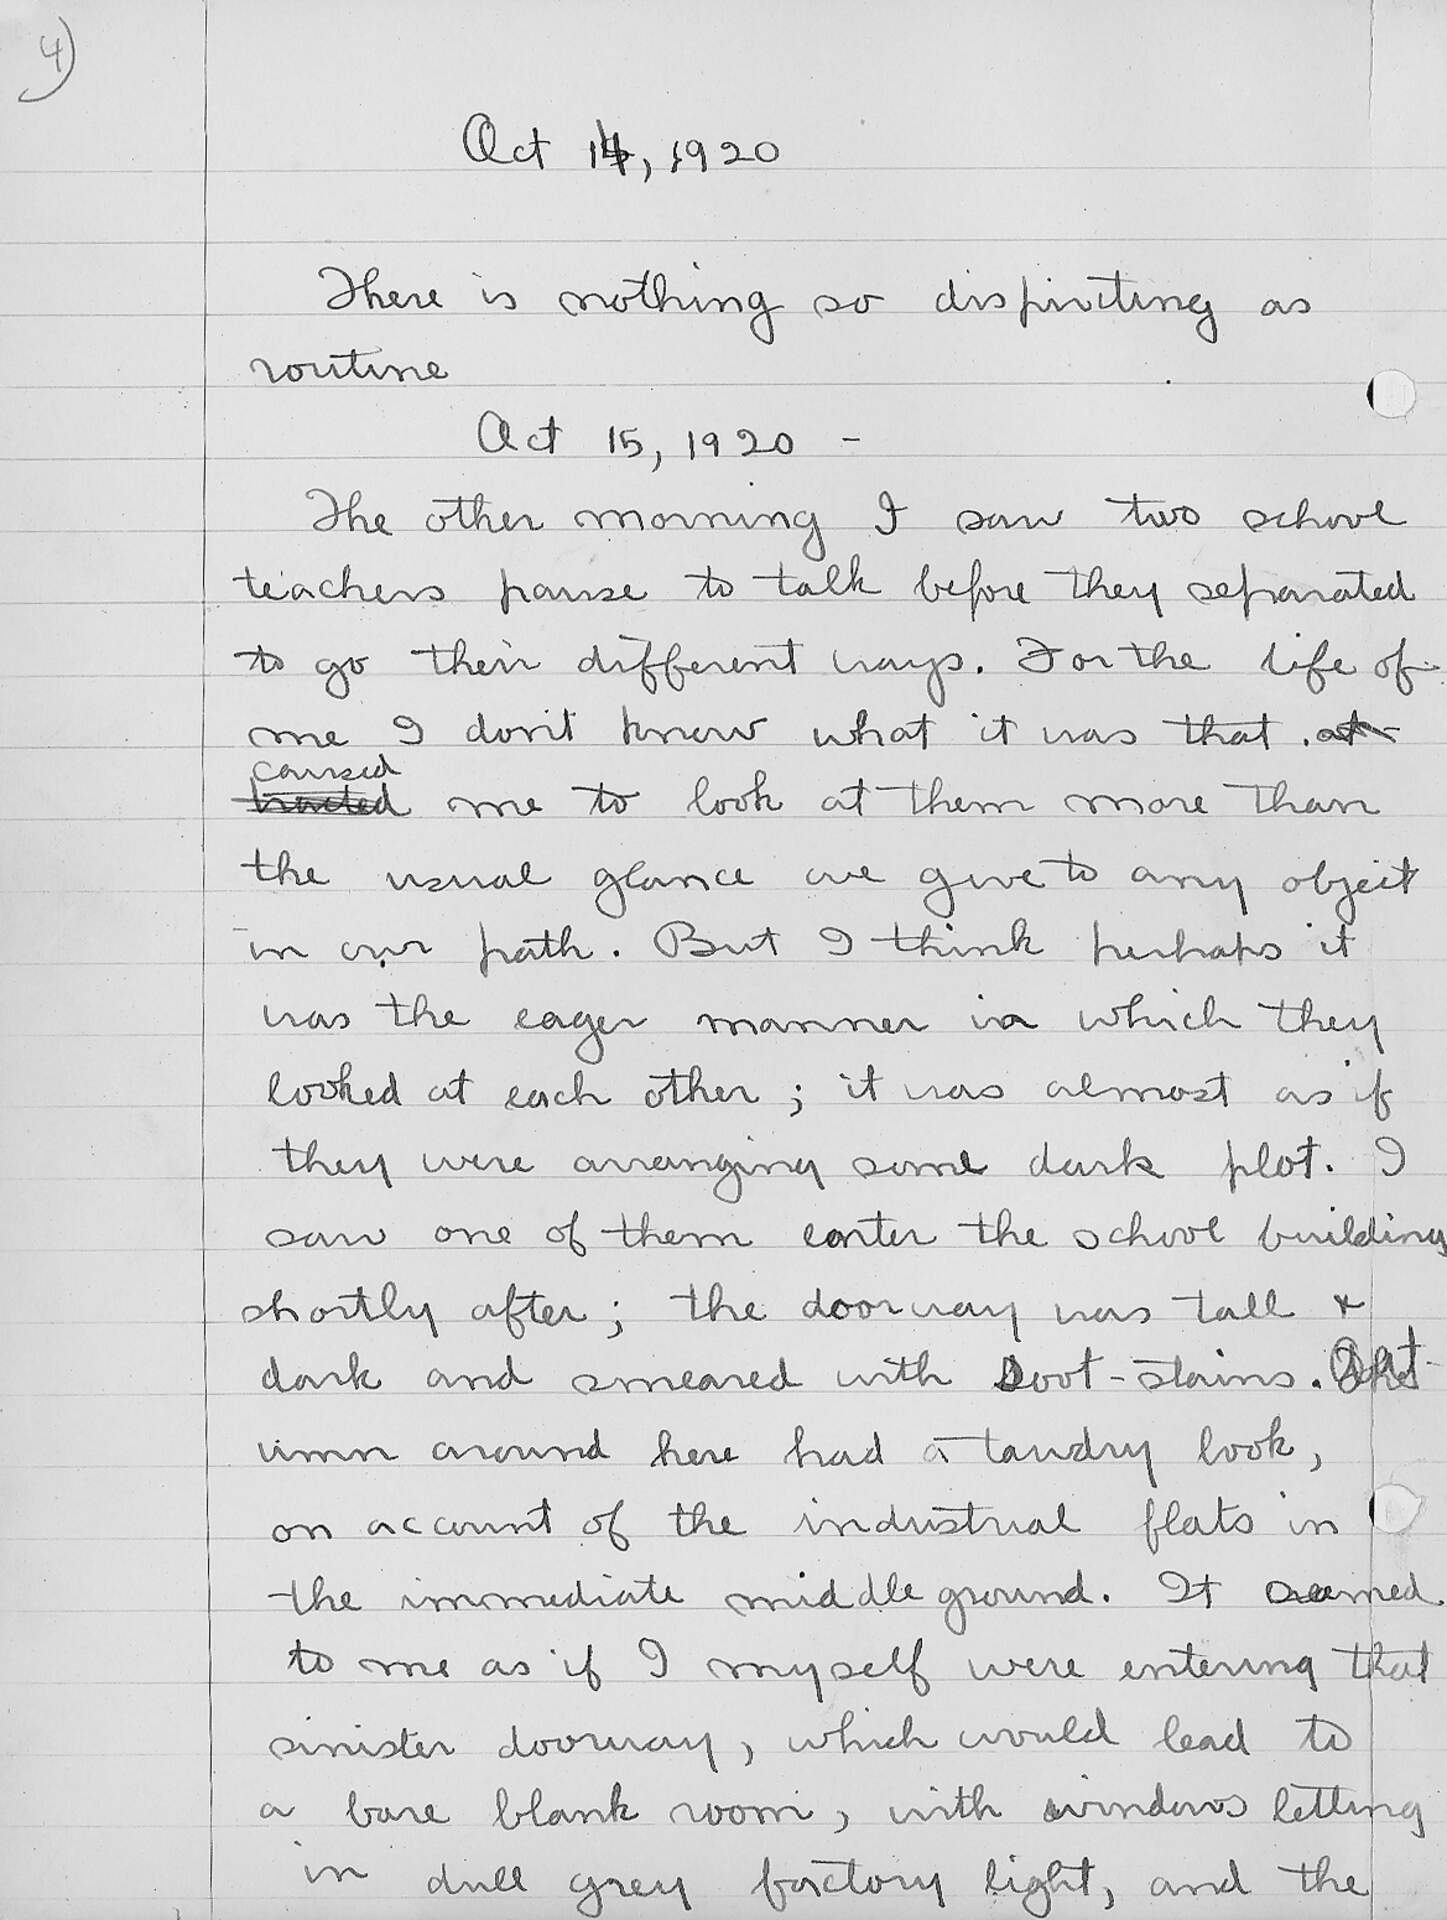 4)
Oct 14, 1920
There is nothing so dispiriting as
routine
Oct 15, 1920 -
The other morning I saw two school
teachers pause to talk before they separated
to go their different ways. For the life of
me I don't know what it was that at-
caused
tracted me to look at them more than
the usual glance we give to any object
in our path. But I think perhaps it
was the eager manner in which they
looked at each other; it was almost as if
they were arranging some dark plot. I
saw one of them enter the school building
shortly after; the doorway was tall &
dark and smeared with soot-stains.
umn around here had a tawdry look,
on account of the industrial flats in
the immediate middle ground. It seemed
to me as if I myself were entering that
sinister doorway, which would lead to
a bare blank room, with windows letting
in dull grey factory light, and the